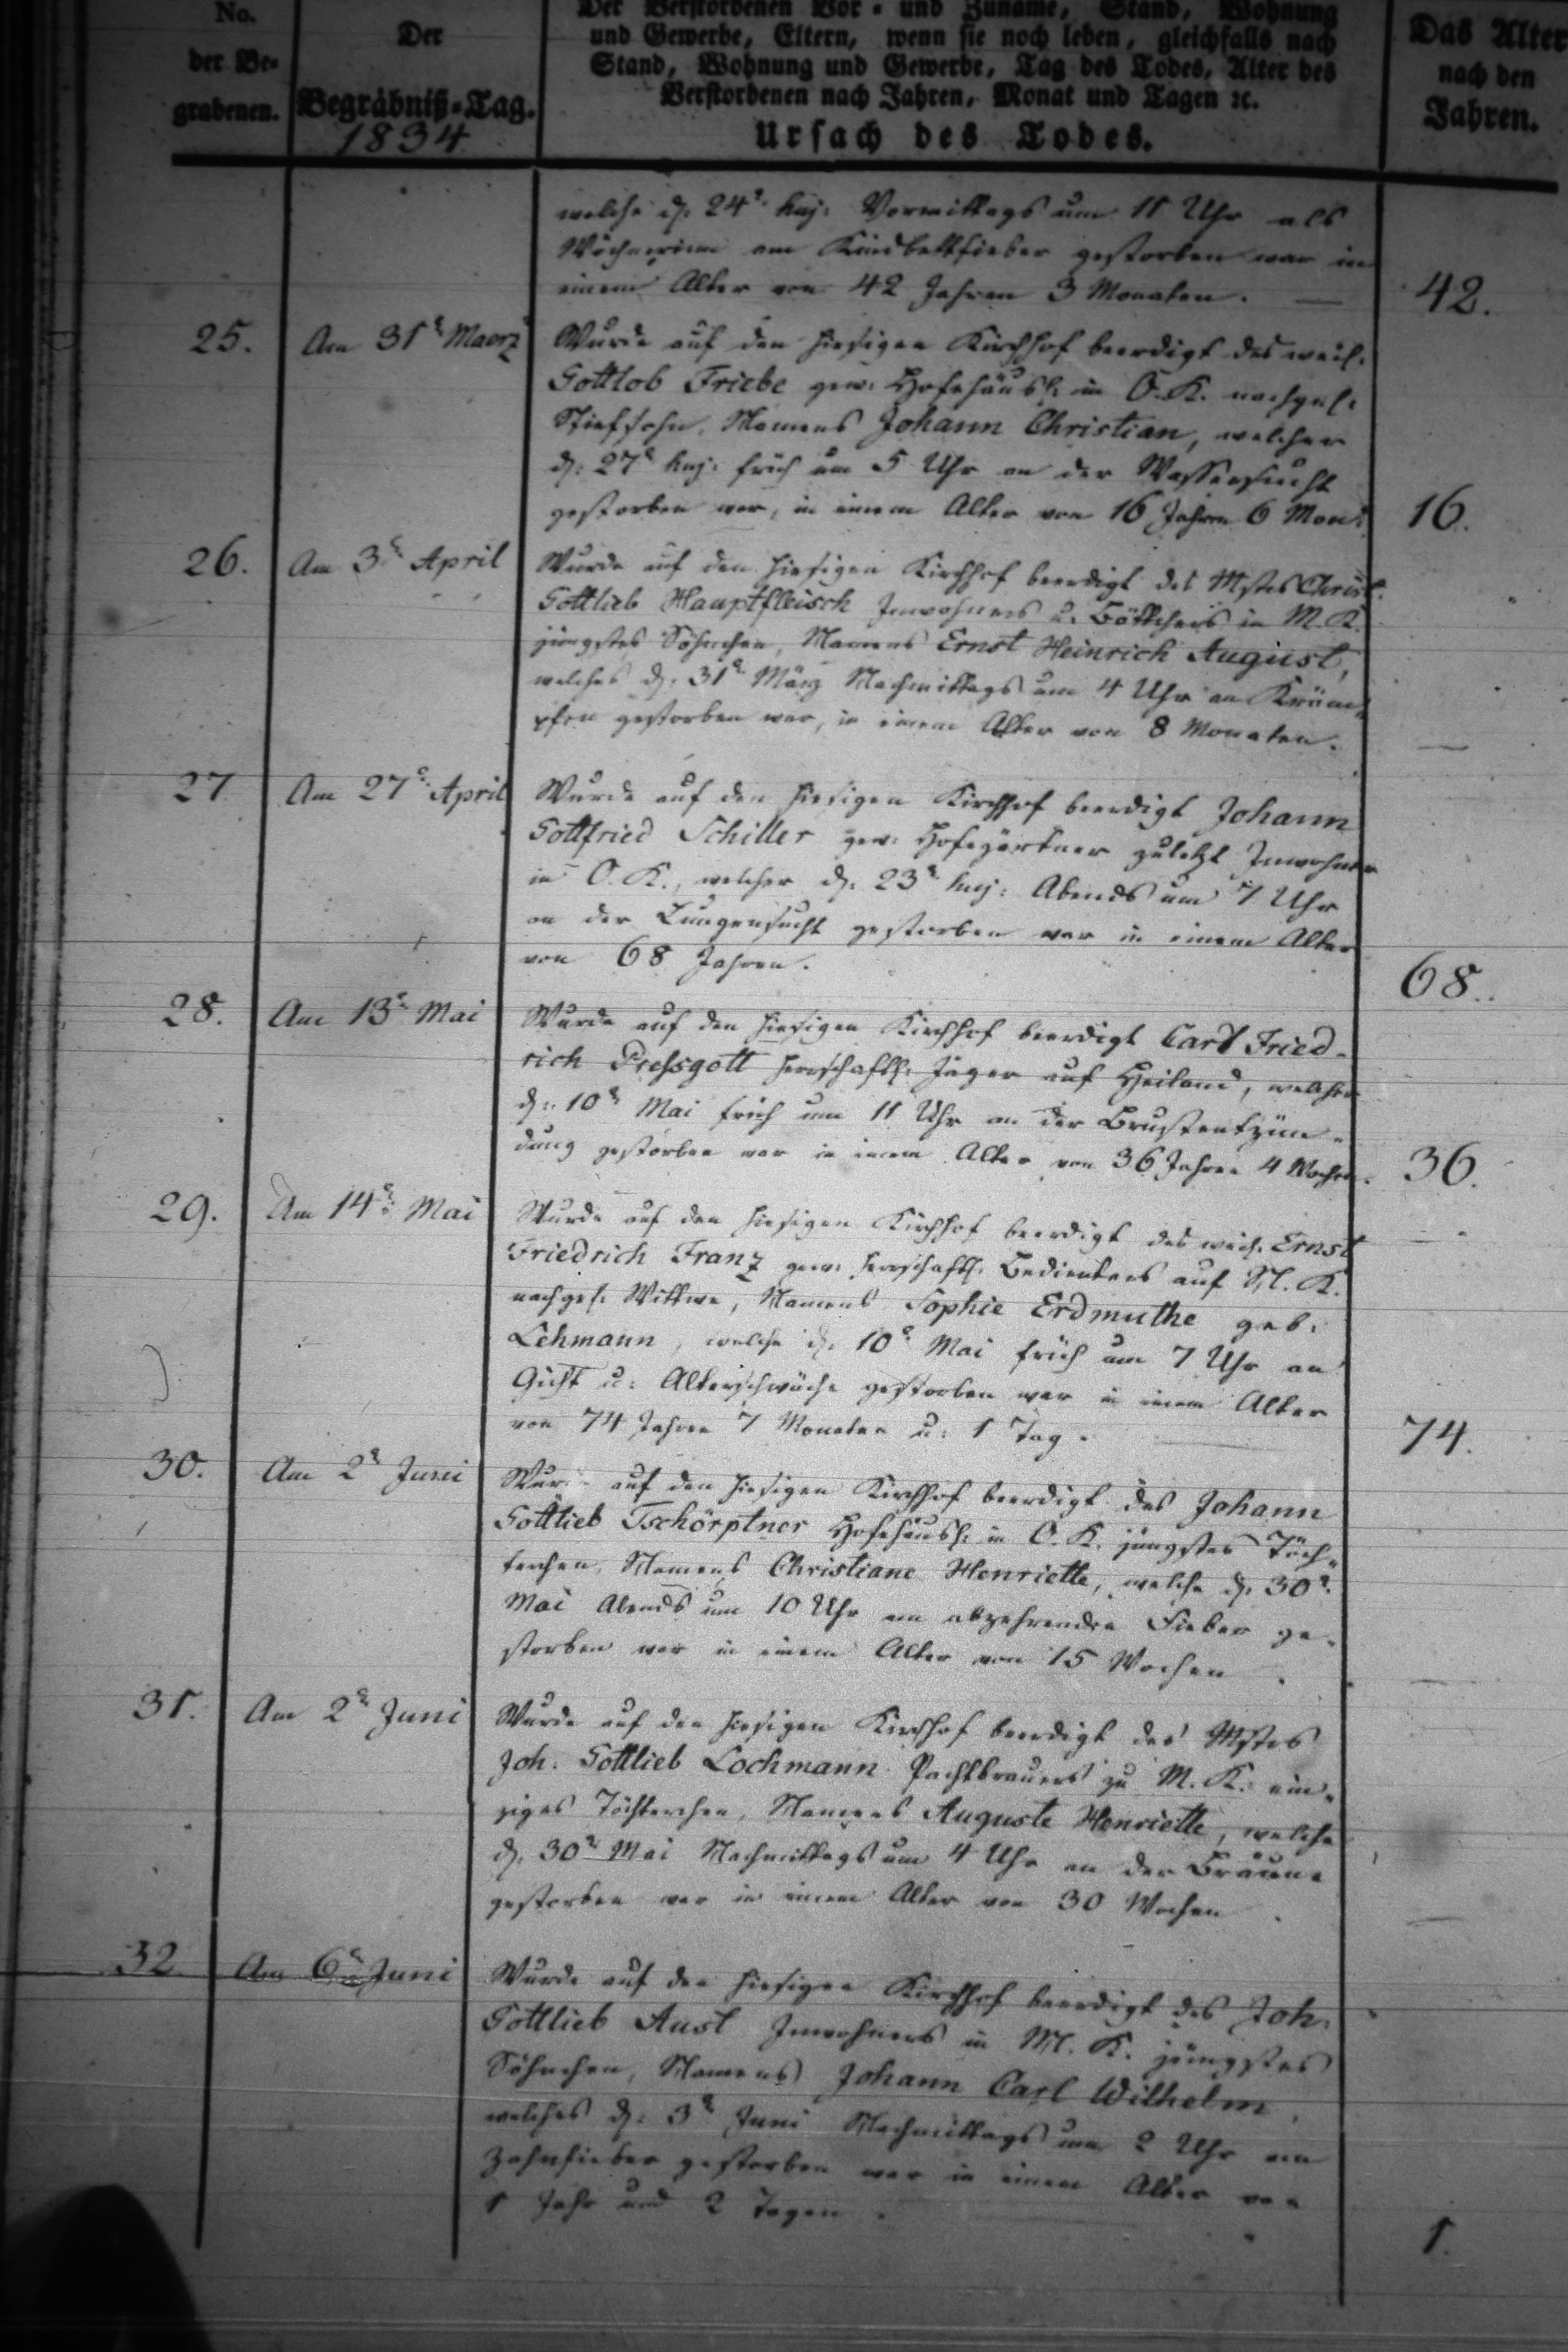 No. der Be- grabenen.
Der Begräbniß-Tag. 1834
Der Verstorbenen Vor- und Zuname, Stand, Wohnung
und Gewerbe, Eltern, wenn sie noch leben, gleichfalls nach
Stand, Wohnung und Gewerbe, Tag des Todes, Alter des
Verstorbenen nach Jahren, Monat und Tagen ꝛc.
Ursach des Todes.
Das Alter nach den Jahren.
welche d. 24t. huj. Vormittags um 11 Uhr als
Wöchnerinn am Kindbettfieber gestorben war in
einem Alter von 42 Jahren 3 Monaten. 42.
25. Am 31t Maerz Wurde auf den hiesigen Kirchhof beerdigt des weil.
Gottlob Friebe gew. Hofehäusl. in O. K. nachgel.
Stiefsohn, Namens Johann Christian, welcher
d. 27t huj. früh um 5 Uhr an der Wassersucht
gestorben war, in einem Alter von 16 Jahren 6 Mon. 16.
26. Am 3t April Wurde auf den hiesigen Kirchhof beerdigt des Mstrs Christ.
Gottlieb Hauptfleisch Inwohners u. Böttchers in M. K.
jüngstes Söhnchen, Namens Ernst Heinrich August,
welches d. 31t März Nachmittags um 4 Uhr an Kräm-
pfen gestorben war, in einem Alter von 8 Monaten. —
27 Am 27t April Wurde auf den hiesigen Kirchhof beerdigt Johann
Gottfried Schiller gew. Hofegärtner zuletzt Inwohner
in O. K., welcher d. 23t huj. Abends um 7 Uhr
an der Lungensucht gestorben war in einem Alter
von 68 Jahren. 68.
28. Am 13t Mai Wurde auf den hiesigen Kirchhof beerdigt Carl Fried-
rich herrschaftl. Jäger auf Heiland, welcher
d. 10t Mai früh um 11 Uhr an der Brustentzün-
dung gestorben war in einem Alter von 36 Jahren 4 Wochen. 36.
29. Am 14t Mai Wurde auf den hiesigen Kirchhof beerdigt des weil. Ernst
Friedrich Franz gew. herrschaftl. Bedienters auf M. K.
nachgel. Wittwe, Namens Sophie Erdmuthe geb.
Lehmann, welche d. 10t Mai früh um 7 Uhr an
Gicht u. Altersschwäche gestorben war in einem Alter
von 74 Jahren 7 Monaten u. 1 Tag. 74.
30. Am 2t Juni Wurde auf den hiesigen Kirchhof beerdigt des Johann
Gottlieb Tschörptner Hofehäusl. in O. K. jüngstes Töch-
terchen, Namens Christiane Henriette, welche d. 30t
Mai Abends um 10 Uhr am abzehrenden Fieber ge-
storben war in einem Alter von 15 Wochen. —
31. Am 2t Juni Wurde auf den hiesigen Kirchhof beerdigt des Mstrs
Joh. Gottlieb Lochmann Pachtbrauers zu M. K. ein-
ziges Töchterchen, Namens Auguste Henriette, welche
d. 30t Mai Nachmittags um 4 Uhr an der Bräune
gestorben war in einem Alter von 30 Wochen. —
32 Am 6t Juni Wurde auf den hiesigen Kirchhof beerdigt des Joh.
Gottlieb Aust Inwohners in M. K. jüngstes
Söhnchen, Namens Johann Carl Wilhelm,
welches d. 3t Juni Nachmittags um 2 Uhr am
Zahnfieber gestorben war in einem Alter von
1 Jahr und 2 Tagen. 1.